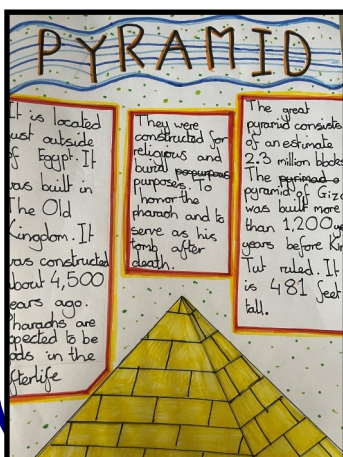 PYRAMID
It is located
just outside
of Egypt. It
was built in
The Old
Kingdom. It
was constructed
about 4,500
years ago.
Pharaohs are
expected to be
gods in the
afterlife
They were
constructed for
religious and
burial
purposes. To
honor the
pharaoh and to
serve as his
tomb after
death.
The great
pyramid consists
of an estimate
2.3 million blocks
The
pyramid of Giza
was built more
than 1,200
years before
Tut ruled. It
is 481 feet
tall.